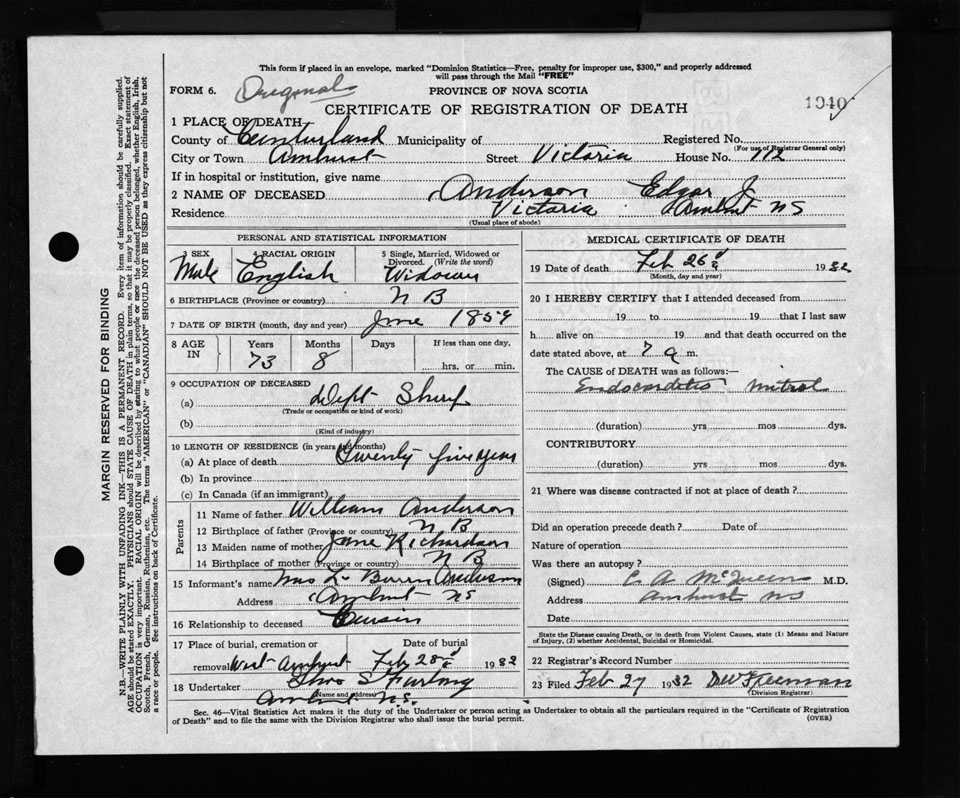 This form if placed in an envelope, marked "Dominion Statistics—Free, penalty for improper use, $300," and properly addressed
will pass through the Mail "FREE"
FORM 6. Original PROVINCE OF NOVA SCOTIA
CERTIFICATE OF REGISTRATION OF DEATH
1940
1 PLACE OF DEATH
County of Cumberland Municipality of Registered No.
(For use of Registrar General only)
City or Town Amherst Street Victoria House No. 112
If in hospital or institution, give name
2 NAME OF DECEASED Anderson Edgar J
Residence Victoria Amherst NS
(Usual place of abode)
PERSONAL AND STATISTICAL INFORMATION
3 SEX 4 RACIAL ORIGIN 5 Single, Married, Widowed or
Divorced. (Write the word)
Male English Widower
6 BIRTHPLACE (Province or country) N B
7 DATE OF BIRTH (month, day and year) June 1859
8 AGE IN Years Months Days If less than one day,
73 8 hrs. or min.
9 OCCUPATION OF DECEASED
(a) Dept Sherif
(Trade or occupation or kind of work)
(b)
(Kind of industry)
10 LENGTH OF RESIDENCE (in years and months)
(a) At place of death Twenty five years
(b) In province
(c) In Canada (if an immigrant)
Parents
11 Name of father William Anderson
12 Birthplace of father (Province or country) N B
13 Maiden name of mother Jane Richardson
14 Birthplace of mother (Province or country) N B
15 Informant's name Mrs Anderson
Address Amherst NS
16 Relationship to deceased Cousin
17 Place of burial, cremation or Date of burial
removal West Amherst Feb 28 1932
18 Undertaker Furlong
(Name and address)
Amherst N.S.
MEDICAL CERTIFICATE OF DEATH
19 Date of death Feb 26 1932
(Month, day and year)
20 I HEREBY CERTIFY that I attended deceased from
19 to 19 that I last saw
h alive on 19 and that death occurred on the
date stated above, at 7 a m.
The CAUSE of DEATH was as follows:—
Endocarditis mitral
(duration) yrs mos dys.
CONTRIBUTORY
(duration) yrs mos dys.
21 Where was disease contracted if not at place of death?
Did an operation precede death? Date of
Nature of operation
Was there an autopsy?
(Signed) C A McQueen M.D.
Address Amherst NS
Date
State the Disease causing Death, or in death from Violent Causes, state (1) Means and Nature
of Injury, (2) whether Accidental, Suicidal or Homicidal.
22 Registrar's Record Number
23 Filed Feb 27 1932 DW Freeman
(Division Registrar)
Sec. 46—Vital Statistics Act makes it the duty of the Undertaker or person acting as Undertaker to obtain all the particulars required in the "Certificate of Registration
of Death" and to file the same with the Division Registrar who shall issue the burial permit. (OVER)
MARGIN RESERVED FOR BINDING
N.B.—WRITE PLAINLY WITH UNFADING INK—THIS IS A PERMANENT RECORD. Every item of information should be carefully supplied.
AGE should be stated EXACTLY. PHYSICIANS should STATE CAUSE OF DEATH in plain terms, so that it may be properly classified. Exact statement of
OCCUPATION is very important. RACIAL ORIGIN will be described by stating to what people or race the deceased person belonged, whether English, Irish,
Scotch, French, German, Russian, Ruthenian, etc. The terms "AMERICAN" or "CANADIAN" SHOULD NOT BE USED as they express citizenship but not
a race or people. See instructions on back of Certificate.